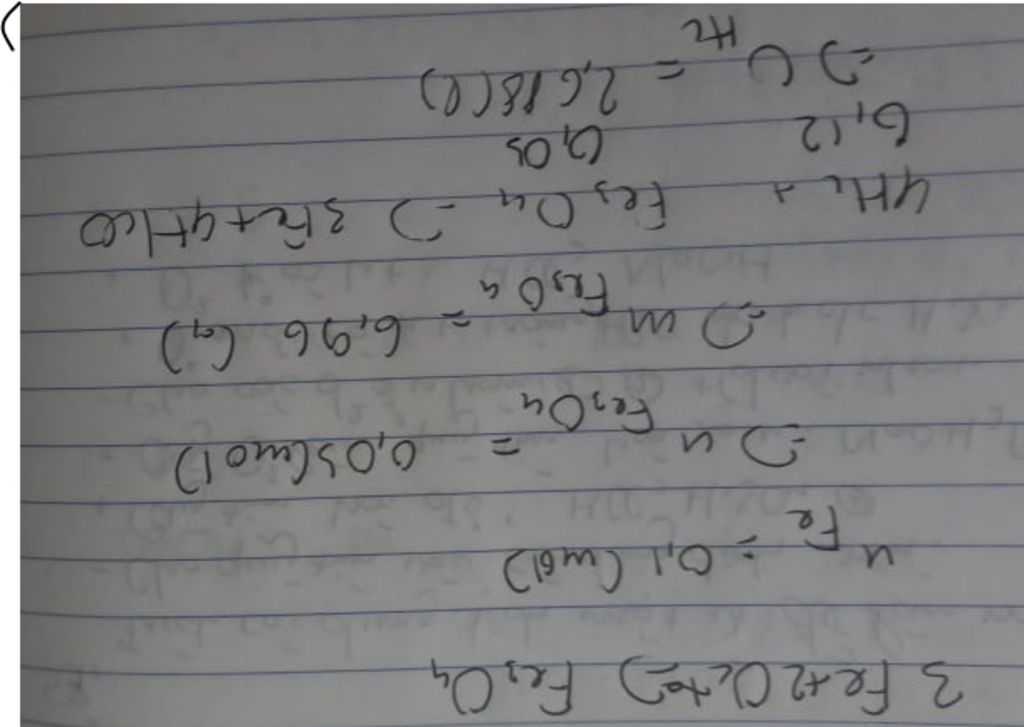 3Fe+2O₂ tº=> Fe₃O₄
nFe = 0,1 (mol)
=> nFe₃O₄ = 0,03(mol)
=> mFe₃O₄ = 6,96 (g)
4H₂ + Fe₃O₄ => 3Fe+4H₂O
0,12 0,03
=> VH₂ = 2,618(l)